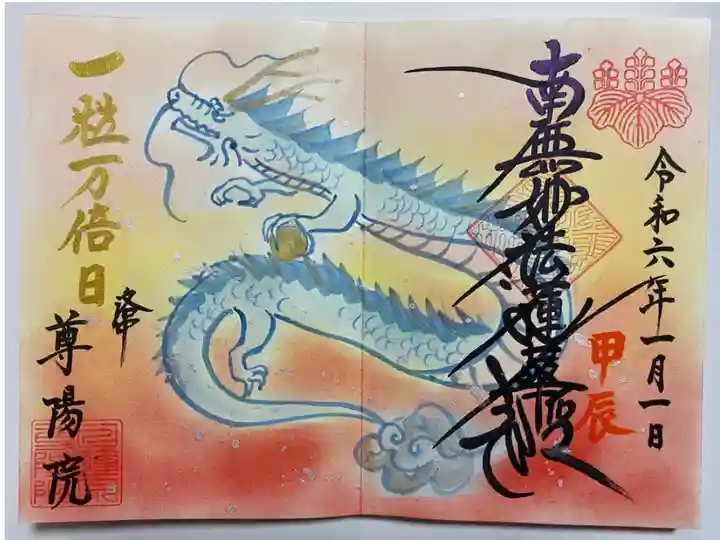 令和六年一月一日
甲辰
南無妙法蓮華経
一粒万倍日
尊陽院